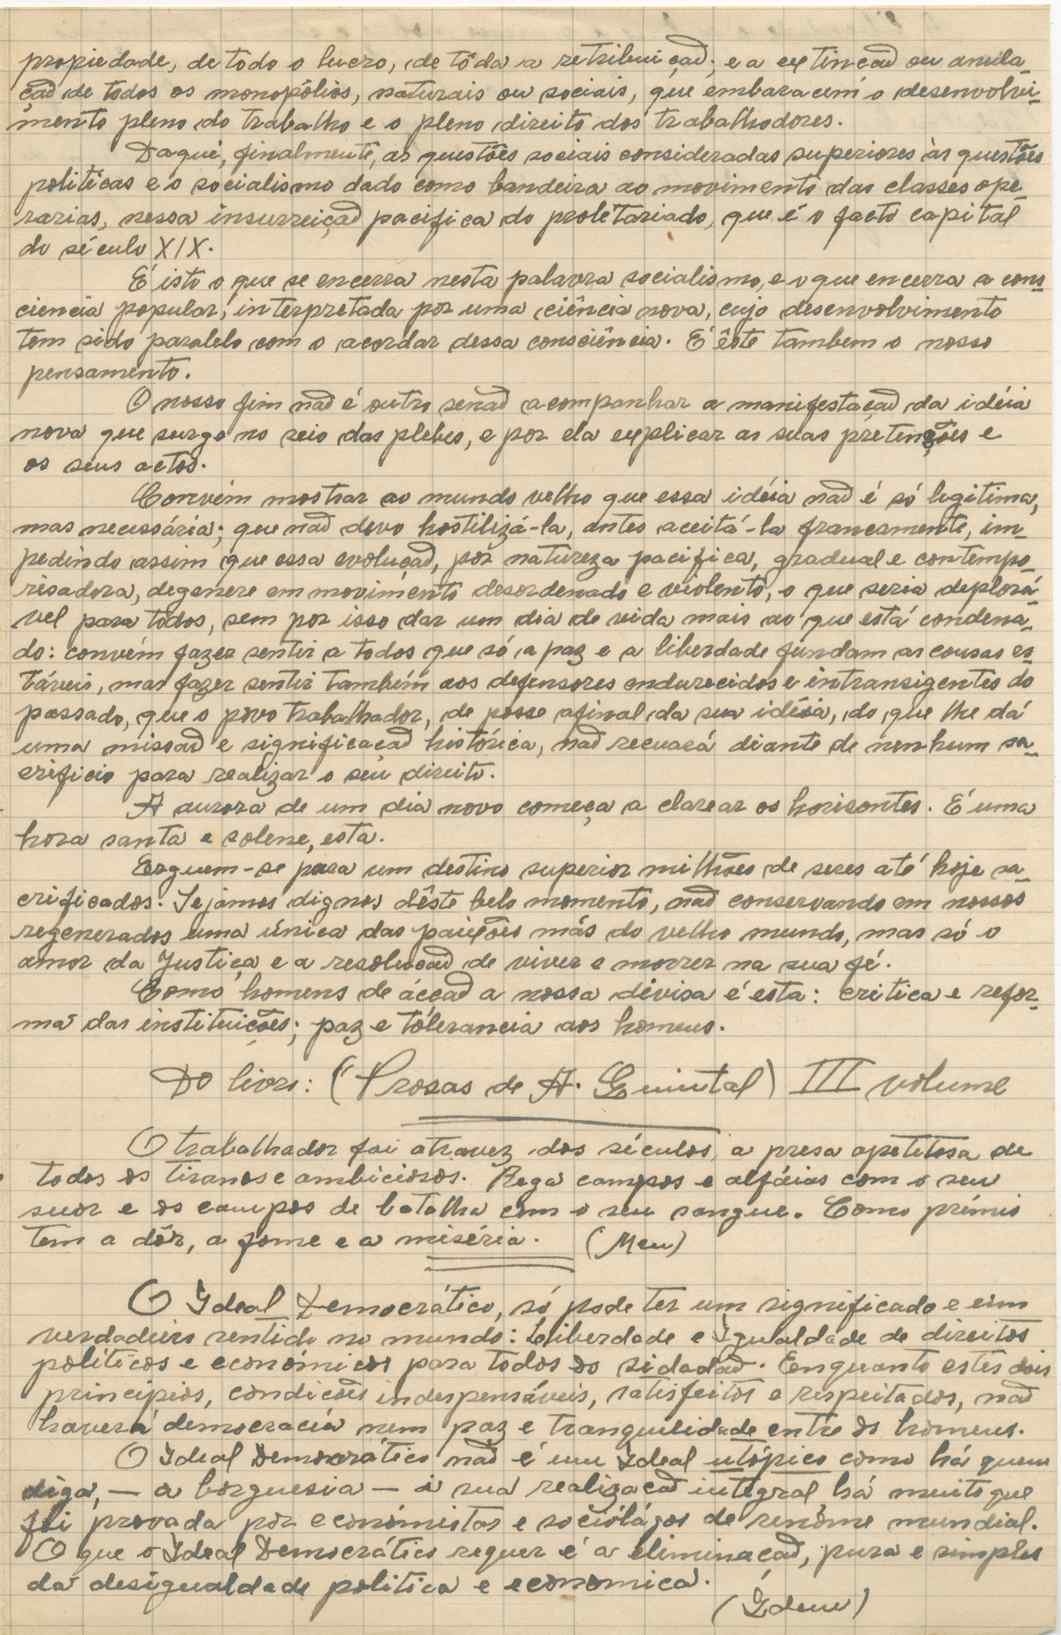 propiedade, de todo o lucro, de tôda a retribuiçaõ; e a extincaõ ou anula-
çaõ de todos os monopólios, naturais ou sociais, que embaracem o desenvolvi-
mento pleno do trabalho e o pleno direito dos trabalhodores.
Daqui, finalmente, as questões sociais consideradas superiores às questões
politicas e o socialismo dado como bandeira ao movimento das classes ope
rarias, nessa insurreiçaõ pacifica do proletariado, que é o facto capital
do século XIX.
É isto o que se encerra nesta palavra socialismo, e o que encerra a cons-
ciencia popular, interpretada por uma ciência nova, cujo desenvolvimento
tem sido paralelo com o acordar dessa consciência. É êste tambem o nosso
pensamento.
O nosso fim naõ é outro senaõ acompanhar a manifestacaõ da idéia
nova que surge no seio das plebes, e por ela explicar as suas pretenções e
os seus actos.
Convém mostrar ao mundo velho que essa idéia naõ é só legitima,
mas necessária; que naõ deve hostilizá-la, antes aceitá-la francamente, im-
pedindo assim que essa evoluçaõ, por natureza pacifica, gradual e contempo-
risadora, degenere em movimento desordenado e violento, o que seria deplorá-
vel para todos, sem por isso dar um dia de vida mais ao que está condena-
do: convém fazer sentir a todos que só a paz e a liberdade fundam as cousas es-
táveis, mas fazer sentir também aos defensores endurecidos e intransigentes do
passado, que o povo trabalhador, de posse afinal da sua idéia, do que lhe dá
uma missaõ e significacaõ histórica, naõ recuará diante de nenhum sa-
crificio para realizar o seu direito.
A aurora de um dia novo começa a clarear os horisontes. É uma
hora santa e solene, esta.
Erguem-se para um destino superior milhões de seres até hoje sa-
crificados. Sejamos dignos dêste belo momento, naõ conservando em nossos
regenerados uma única das paixões más do velho mundo, mas só o
amor da Justiça e a resolucaõ de viver e morrer na sua fé.
Como homens de ácçaõ a nossa divisa é esta: critica e refor-
ma das instituicões; paz e tólerancia aos homens.
Do livro: (Prosas de A. Quintal) III volume
O trabalhador foi atravez dos séculos, a presa apetitosa de
todos os tiranos e ambiciosos. Rega campos e alfáias com o seu
suor e os campos de batalha com o seu sangue. Como prémio
tem a dôr, a fome e a miséria. (Meu)
O Ideal Democrático, só pode ter um significado e um
verdadeiro sentido no mundo: Liberdade e Igualdade de direitos
políticos e económicos para todos os sidadaõ. Enquanto estes dois
principios, condicões indespensáveis, satisfeitos e respeitados, naõ
haverá democracia nem paz e tranquelidade entre os homens.
O Ideal Democrático naõ é um Ideal utópico como há quem
diga, - a borguesia - a sua realizacaõ integral há muito que
foi provada por económistas e sociólógos de renôme mundial.
O que o Ideal Democrático requer é a eliminacaõ, pura e simples
da desigualdade politica e economica.
(Idem)